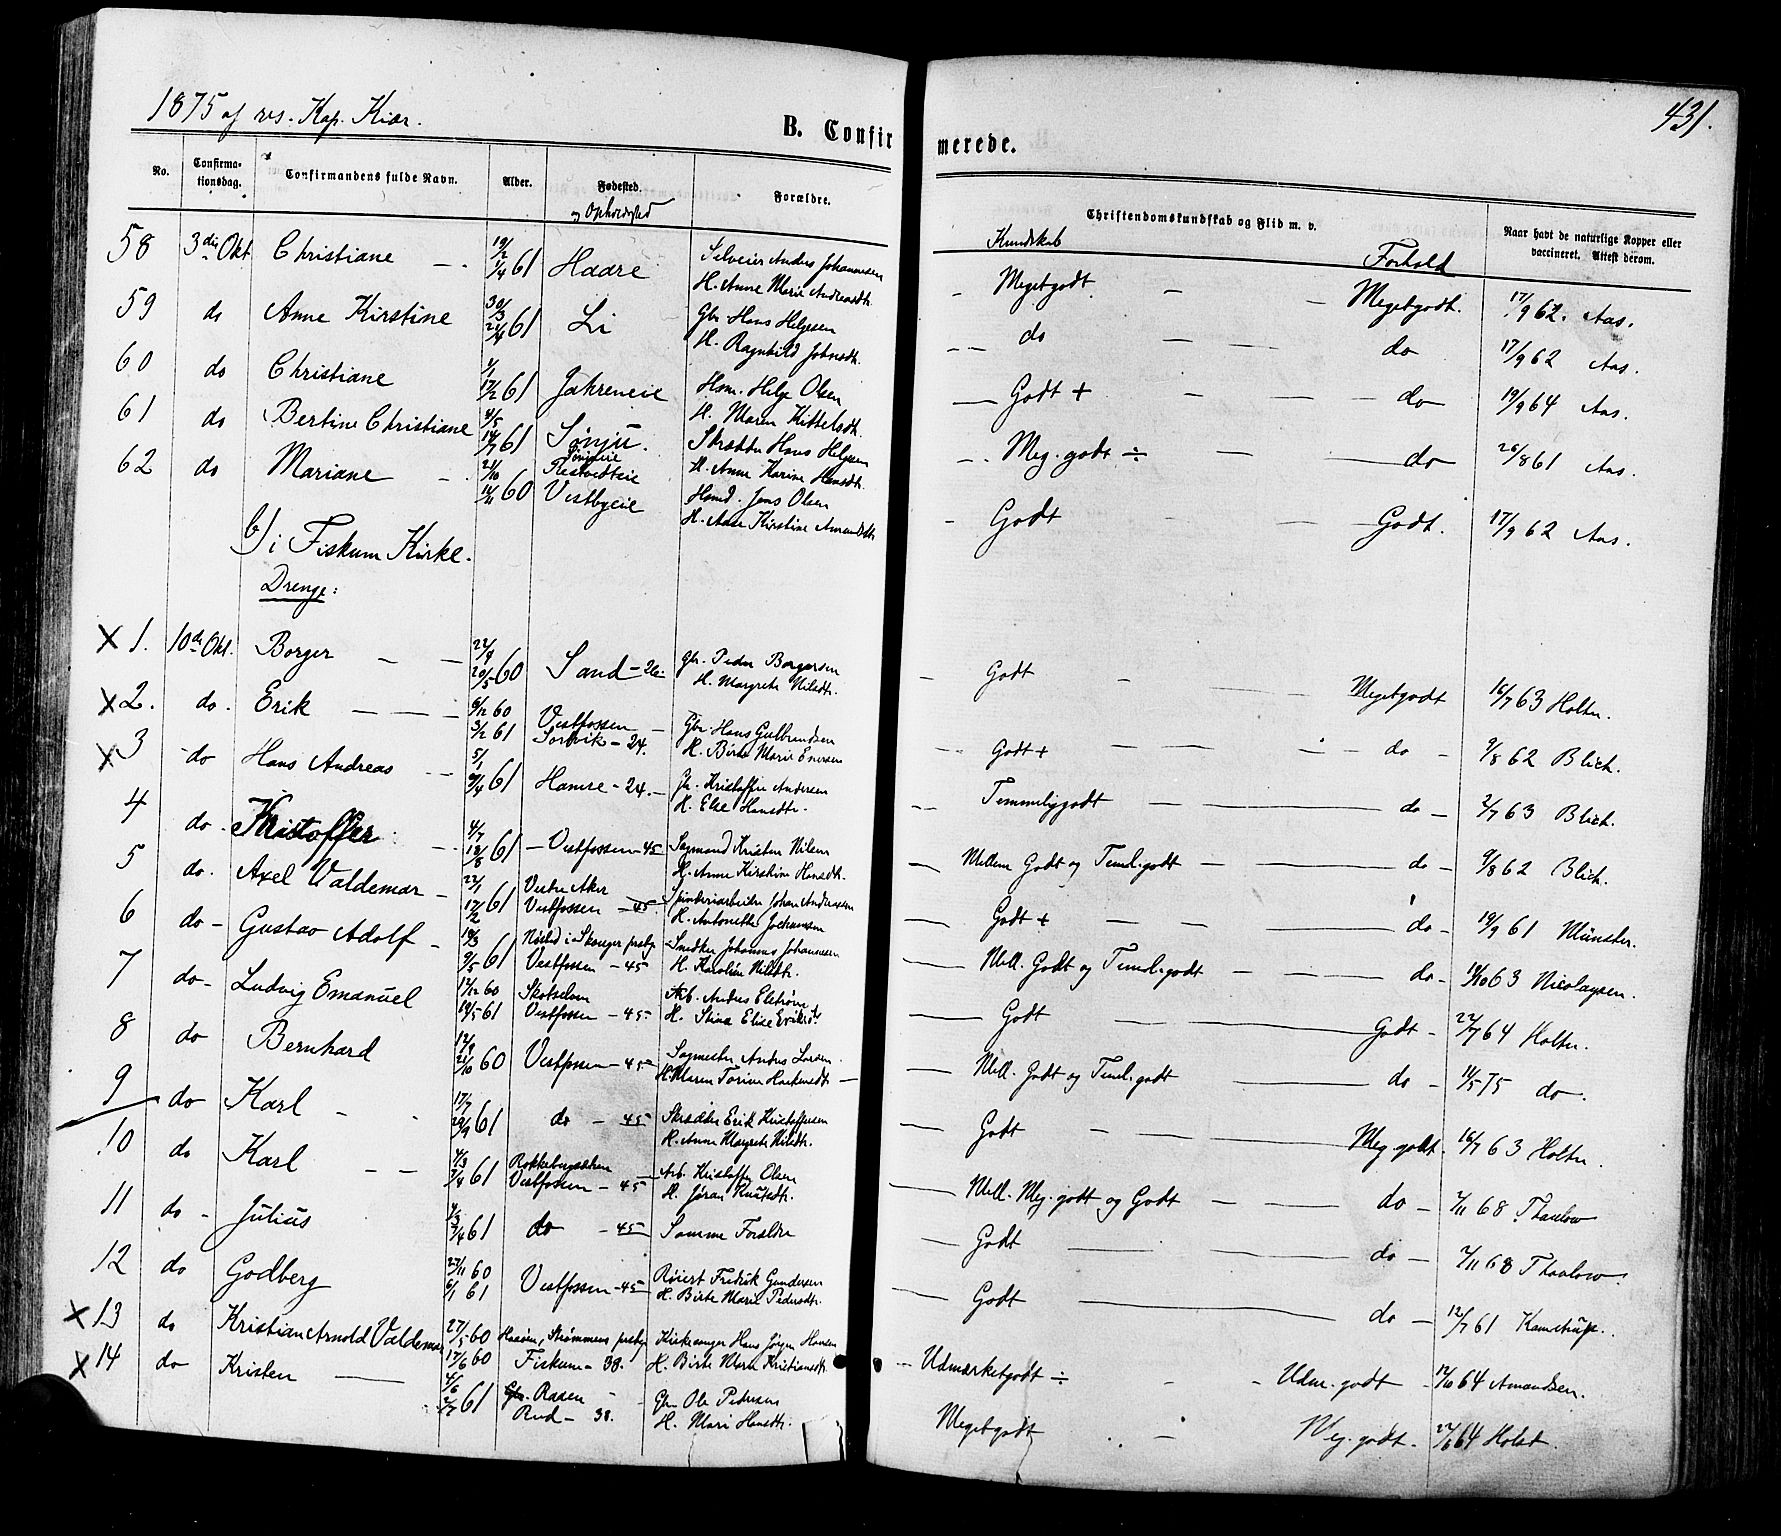 1875 af res. Kap. Kiær.
B. Confirmerede.
431.
No. Confirmationsdag. Confirmandens fulde Navn. Alder. Fødested. og Opholdssted Forældre. Christendomskundskab og Flid m. v. Naar havt de naturlige Kopper eller vaccineret. Attest derom.
Kundskab Forhold
58 3die Okt. Christiane 19/2 1/4 61 Haare Selveier Anders Johannesen
H. Anne Marie Andreasdtr. Megetgodt. Megetgodt. 17/9 62. Aas.
59 do Anne Kirstine 30/3 21/4 61 Li Gbr. Hans Helgesen
H. Ragnhild Johnsdtr. do do 17/9 62 Aas.
60 do Christiane 1/1 17/2 61 Jahreneie Hsm. Helge Olsen
H. Maren Kittelsdtr. Godt + do 19/9 64 Aas.
61 do Bertine Christiane 4/5 14/7 61 Sønju. Skrædder Hans Helgesen
H. Anne Karine Hansdtr. Meg. godt ÷ do 26/8 61 Aas.
62 do Mariane 21/10 11/11 60 Vestbyeie Hsmd. Jens Olsen
H. Anne Kirstine Amundsdtr. Godt Godt. 17/9 62 Aas.
b) i Fiskum Kirke.
Drenge:
X 1. 10de Okt. Borger 22/4 20/5 60 Sand - 26 Gbr. Peder Borgersen
H. Margrete Nilsdtr. Godt Megetgodt 16/7 63 Holter.
X 2. do. Erik 6/12 60 3/2 61 Vestfossen
Sorbvik - 24. Gbr. Hans Gulbrandsen
H. Birte Marie Enersen Godt + do 9/8 62 Blich.
X 3 do Hans Andreas 5/1 9/4 61 Hamre - 24. Gbr. Kristoffer Andersen
H. Else Hansdtr. Temmeliggodt do 2/7 63 Blich.
4 do. Kristoffer 4/7 18/8 61 Vestfossen - 45 Sagmand Kristen Nilsen
H. Anne Kirstine Hansdtr. Mellem Godt og Teml. godt do 9/8 62 Blich.
5 do. Axel Valdemar 23/1 17/2 61 Vestre Aker
Vestfossen - 45. Spinderiarbeider Johan Andreasen
H. Antonette Jochumsen Godt + do 19/9 61 Münster.
6 do Gustav Adolf 18/3 9/5 61 Nøsted i Skouger prstgj.
Vestfossen - 45 Snedker Johannes Johannesen
H. Karoline Nilsdtr. Mell. Godt og Teml. godt do 11/10 63 Nicolaysen.
7 do Ludvig Emanuel 17/12 60 19/5 61 Skotselven
Vestfossen - 45 Arb. Anders Elstrøm
H. Stina Elise Eriksdtr. Godt Godt 22/7 64 Holter.
8 do Bernhard 12/9 21/10 60 Vestfossen - 45 Sagmester Anders Larsen
H. Maren Torine Haakensdtr. Mell. Godt og Teml. godt do 11/5 75 do.
9 do Karl 17/7 29/9 61 do - 45 Skrædder Erik Kristoffersen
H. Anne Margrete Nilsdtr. Godt Meg. godt. 16/7 63 Holter.
10 do Karl 4/3 7/4 61 Vestfossen - 45 Arb. Kristoffer Olsen
H. Jøran Knutsdtr. Mell. Meg. godt og Godt do 2/11 68 Thaulow
11 do Julius 4/3 7/4 61 do - 45 Samme Forældre Godt do 2/11 68 Thaulow
12 do Godberg 23/11 60 6/1 61 Vestfossen - 45 Røiert Fredrik Gundersen
H. Birte Marie Pedersdtr. Godt do 12/7 61 Kamstrup.
X 13 do Kristian Arnold Valdemar 27/5 60 17/6 60 Strømmens prstgj.
Fiskum - 38. Kirkesanger Hans Jørgen Hansen
H. Birte Maren Kristiansdtr. Udmærketgodt ÷ Udm. godt 12/10 64 Amundsen.
X 14 do Kristen 4/6 2/7 61 Raaen
Rud - 38. Gbr. Ole Pedersen
H. Mari Hansdtr. Megetgodt Meg. godt. 22/6 64 Holst.